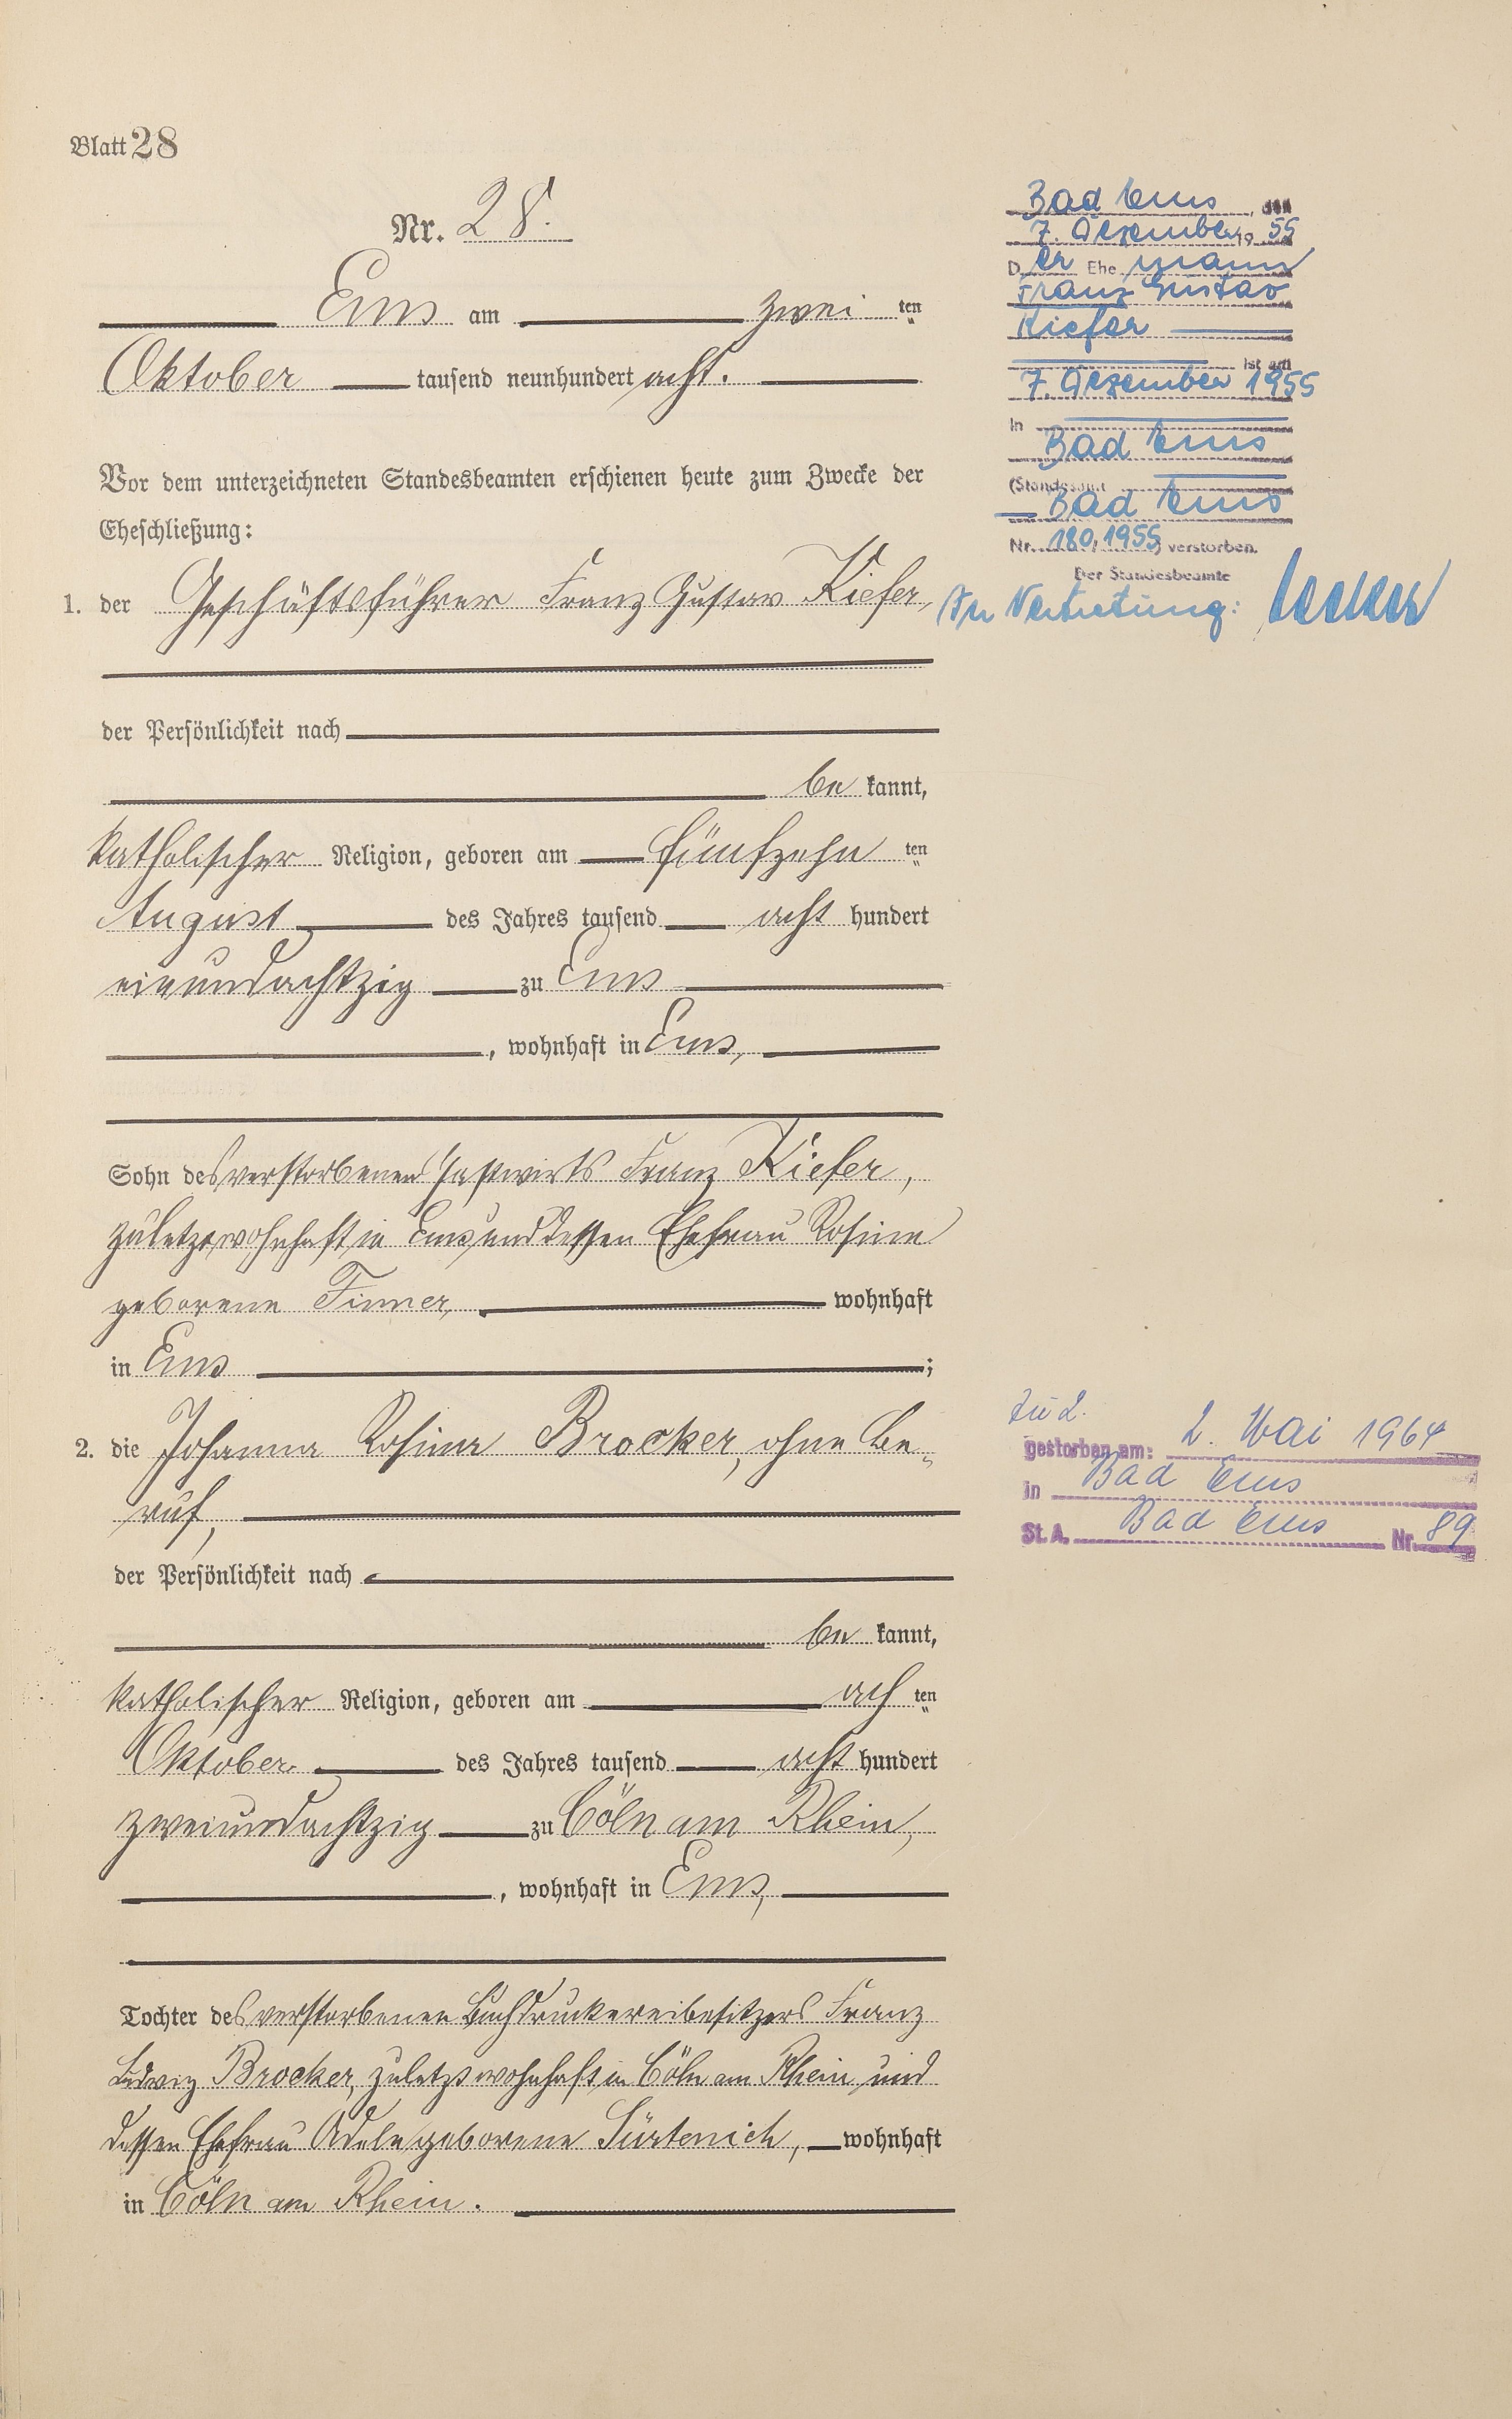 Blatt 28
Nr. 28.
Ems am zwei ten
Oktober tausend neunhundert acht.
Vor dem unterzeichneten Standesbeamten erschienen heute zum Zwecke der
Eheschließung:
1. der Geschäftsführer Franz Gustav Kiefer,
der Persönlichkeit nach
be kannt,
katholischer Religion, geboren am fünfzehn ten
August des Jahres tausend acht hundert
einundachtzig zu Ems
, wohnhaft in Ems,
Sohn des verstorbenen Gastwirts Franz Kiefer,
zuletzt wohnhaft in Ems und dessen Ehefrau Rosina
geborene Firmer, wohnhaft
in Ems ;
2. die Johanna Rosina Brocker, ohne Be-
ruf,
der Persönlichkeit nach
be kannt,
katholischer Religion, geboren am ach ten
Oktober des Jahres tausend acht hundert
zweiundachtzig zu Cöln am Rhein,
, wohnhaft in Ems,
Tochter des verstorbenen Buchdruckereibesitzers Franz
Ludwig Brocker, zuletzt wohnhaft in Cöln am Rhein und
dessen Ehefrau Adele geborene Sürtenich, wohnhaft
in Cöln am Rhein.
Bad Ems, den
7. Dezember 19 55
Der Ehe mann
Franz Gustav
Kiefer
ist am
7. Dezember 1955
in
Bad Ems
(Standesamt
Bad Ems
Nr. 180/1955) verstorben.
Der Standesbeamte
In Vertretung:
Zu 2.
gestorben am: 2. Mai 1964
in Bad Ems
St. A. Bad Ems Nr. 89